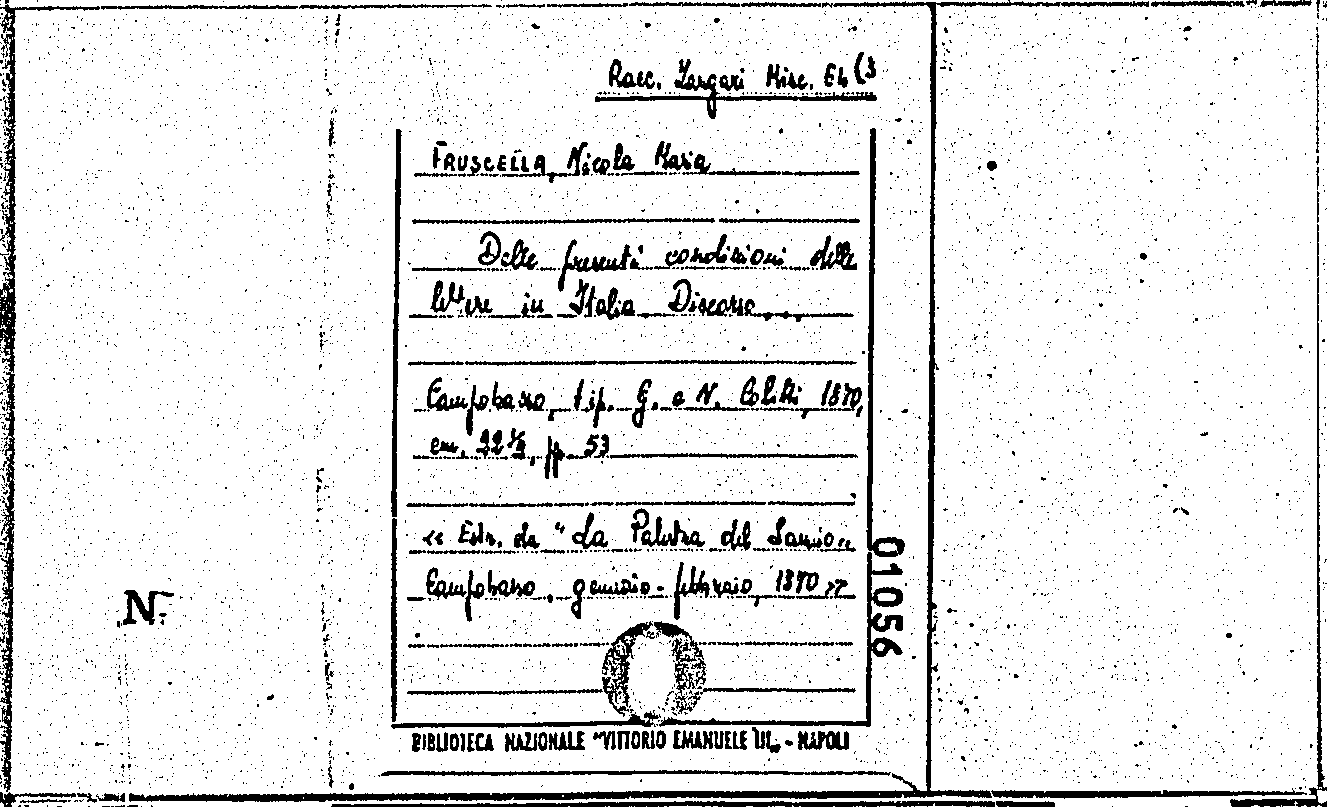 Racc. Zangari Misc. E4 (3
FRUSCELLA, Nicola Maria
Delle presenti condizioni delle
lettere in Italia. Discorso...
Campobasso, tip. G. e N. Colitti, 1870,
cm. 22 ½, pp. 53
« Estr. da "La Palestra del Sannio„
Campobasso, gennaio - febbraio, 1870 »
01056
N.
BIBLIOTECA NAZIONALE "VITTORIO EMANUELE III„ - NAPOLI